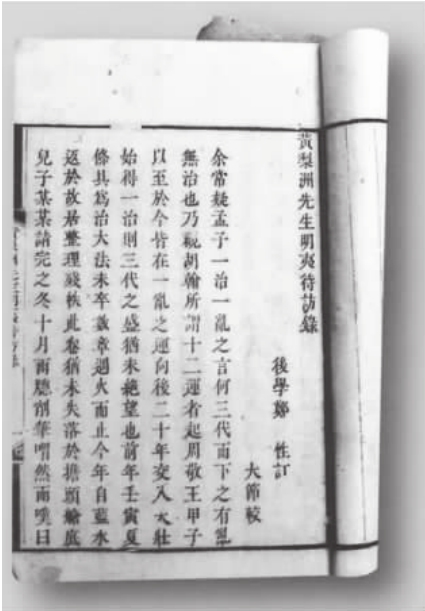 黃梨洲先生明夷待訪錄
後學鄭 性訂
大節校
余常疑孟子一治一亂之言何三代而下之有亂
無治也乃觀胡翰所謂十二運者起周敬王甲子
以至於今皆在一亂之運向後二十年交入大壯
始得一治則三代之盛猶未絕望也前年壬寅夏
條具為治大法未卒數章遇火而止今年自藍水
返於故居整理殘帙此卷猶未失落於擔頭艙底
兒子某某請完之冬十月雨牕削筆喟然而嘆曰